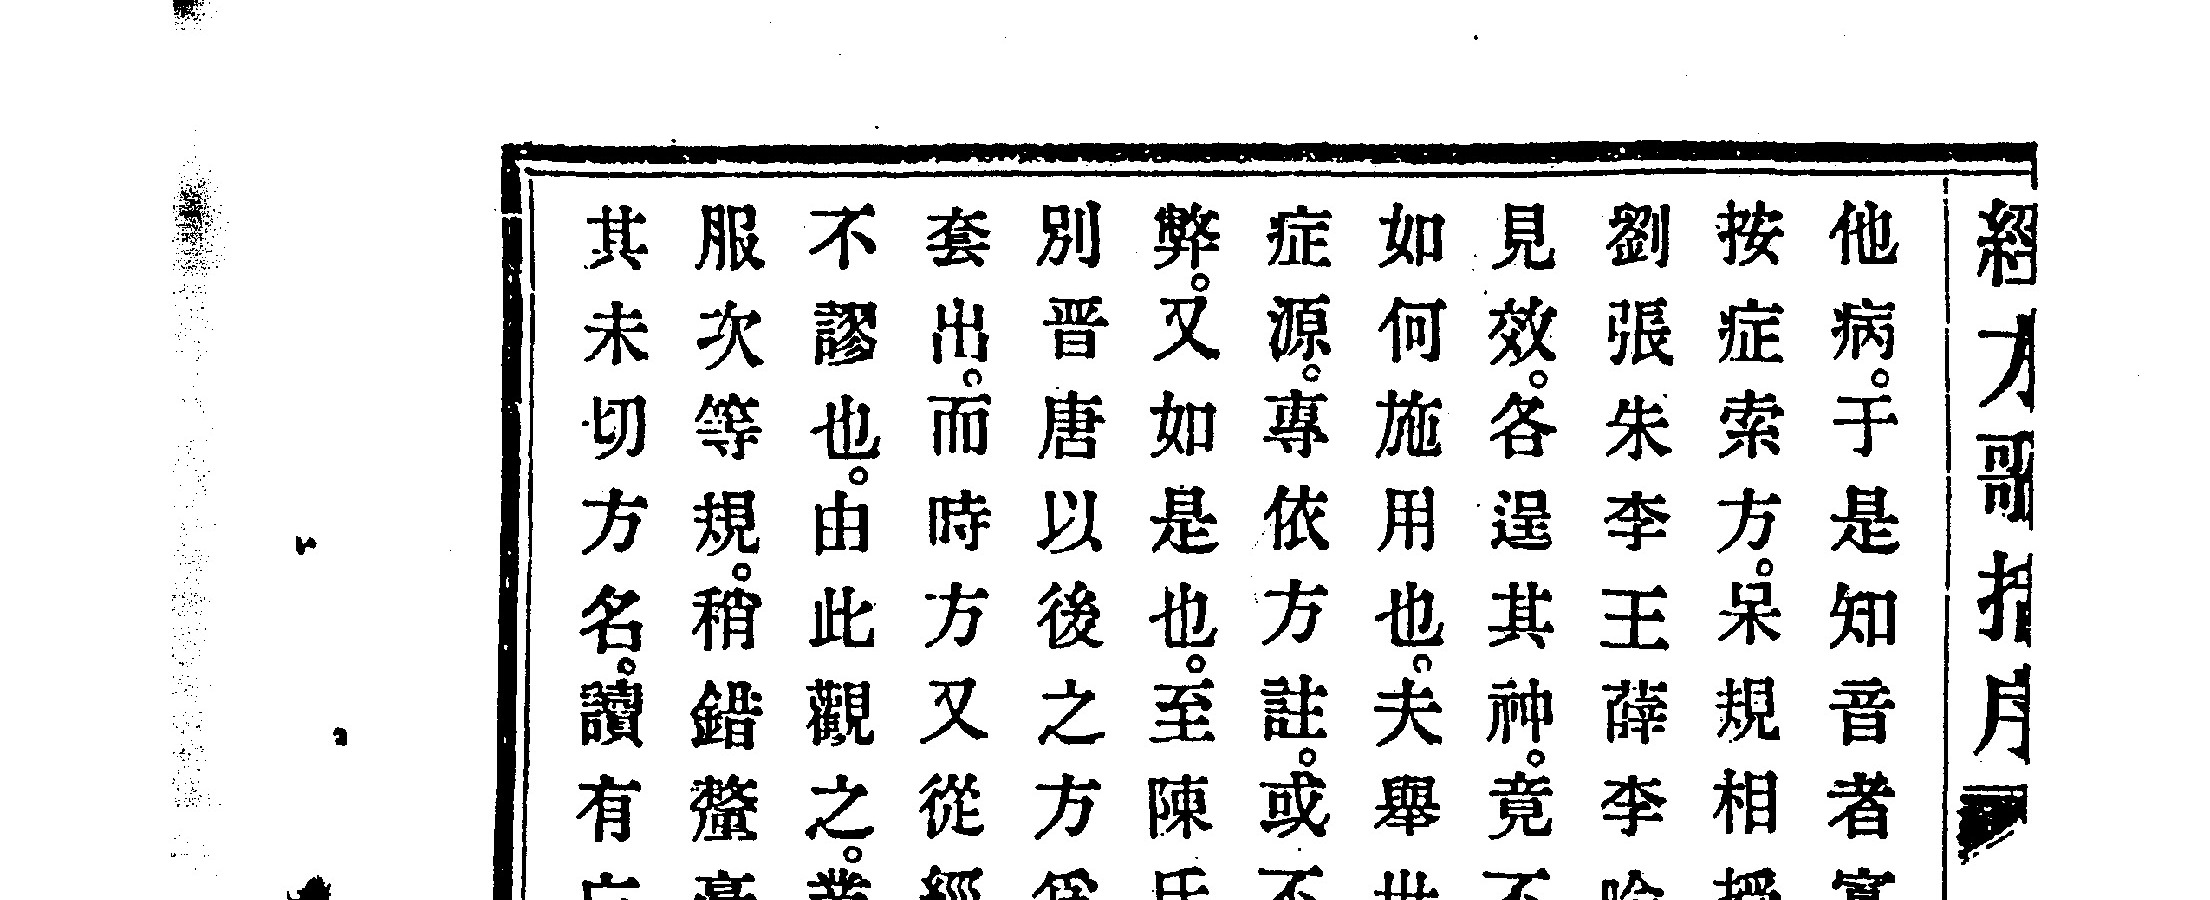 經方歌括
他病。于是知音者寡
按症索方。呆規相授
劉張朱李王薛李喻
見效。各逞其神。竟不
如何施用也。夫舉世
症源。專依方註。或不
弊。又如是也。至陳氏
別晋唐以後之方爲
套出。而時方又從經
不謬也。由此觀之。業
服次等規。稍錯釐毫
其未切方名。讀有